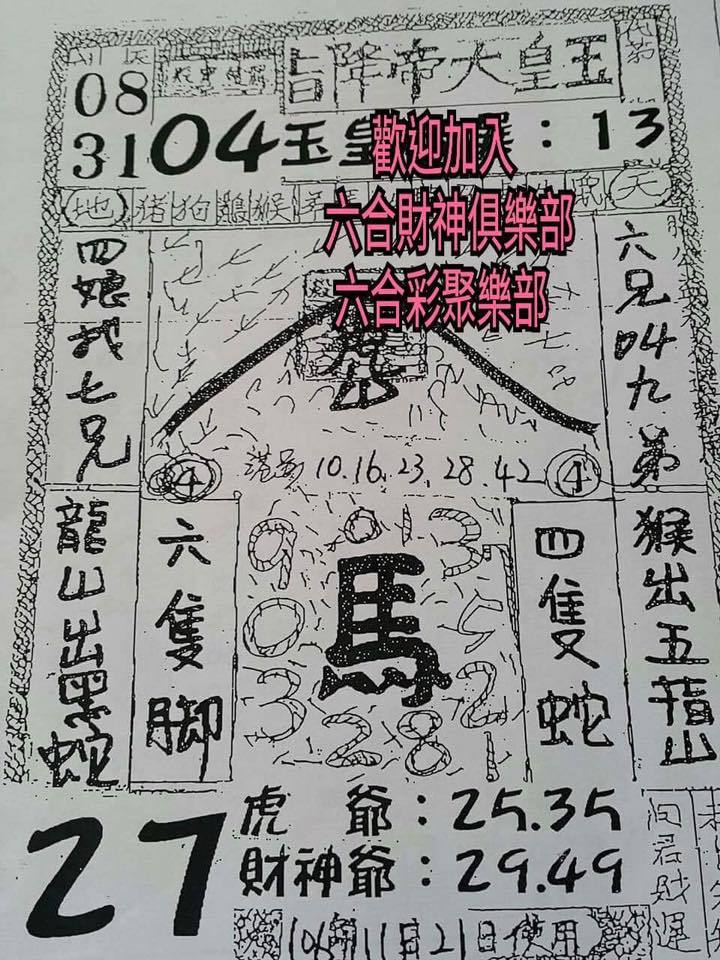 玉皇大帝降旨
08
31
04
玉皇
:13
歡迎加入
六合財神俱樂部
六合彩聚樂部
地
猪
狗
鷄
猴
鼠
天
四娘
七兄
六兄04九弟
山
港号 10.16.23.28.42
4
4
龍山出黑蛇
六隻脚
馬
9
0
1
3
0
5
3
2
2
8
四隻蛇
猴出五指山
27
虎爺:25.35
財神爺:29.49
106年11月21日使用